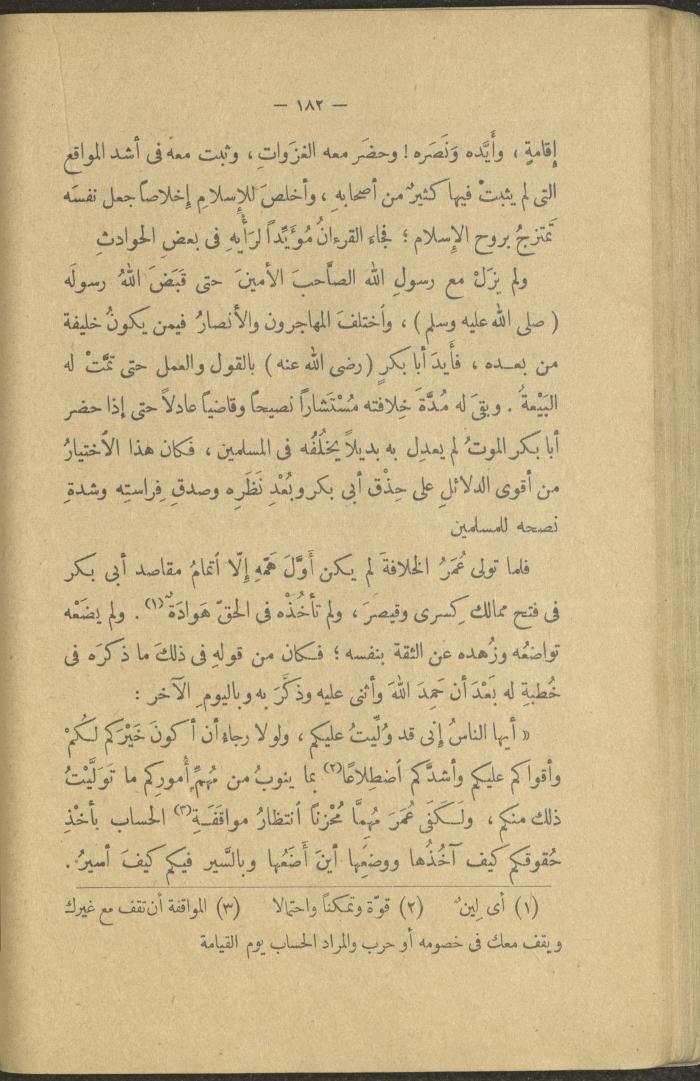 — ١٨٢ —
إقامةٍ ، وأَيَّده وَنَصَره ! وحضَر معه الغزَواتِ ، وثبت معه فى أشد المواقع
التى لم يثبتْ فيها كثيرٌ من أصحابهِ ، وأخلصَ للإسلامِ إخلاصاً جعل نفسَه
تَمتزجُ بروح الإسلام ؛ فجاء القرءانُ مُؤيِّداً لرَأْيِهِ فى بعضِ الحوادثِ
ولم يزَلْ مع رسولِ الله الصَّاحبَ الأمينَ حتى قَبَضَ اللهُ رسولَه
( صلى الله عليه وسلم ) ، واختلفَ المهاجرون والأنصارُ فيمن يكونُ خليفة
من بعـده ، فأَيدَ أبا بكرٍ ( رضى الله عنه ) بالقول والعمل حتى تمَّتْ له
البَيْعةُ . وبقىَ له مُدَّةَ خِلافته مُسْتَشاراً نصيحاً وقاضياً عادلاً حتى إذا حضر
أبا بكر الموتُ لم يعدِل به بديلاً يخلُفُه فى المسلمين ، فكان هذا الاختيارُ
من أقوى الدلائلِ على حِذْق أبى بكر وبُعْدِ نَظَرِه وصدقِ فِراستِه وشدةِ
نصحه للمسلمين
فلما تولى عُمَرُ الخلافةَ لم يكن أَوَّلَ هَمِّهِ إلّا اتمامُ مقاصد أبى بكر
فى فتح ممالك كِسرى وقيصرَ ، ولم تأخُذْه فى الحقّ هَوادَةٌ (١) . ولم يضَعْه
تواضعُه وزُهده عن الثقة بنفسه ؛ فـكان من قولهِ فى ذلكَ ما ذكرَه فى
خُطبةِ له بَعْدَ أن حَمِدَ اللهَ وأثنى عليه وذكَّرَ به وباليومِ الآخر :
« أيها الناسُ إنى قد وُلِّيتُ عليكم ، ولولا رجاءُ أن أكونَ خَيْرَكم لـكُمْ
وأقواكم عليكم وأشدَّكم اضطِلاعًا (٢) بما ينوبُ من مُهِمِّ أُمورِكم ما تَوَلَّيْتُ
ذلك منكم ، ولَـكَفَى عُمَرَ مُهِمًّا مُحْزِنًا انتظارُ مواقَفَـةِ (٣) الحساب بأخْذِ
حُقوقكم كيف آخُذُها ووضعِها أينَ أَضَعُها وبالسَّير فيكم كيفَ أسيرُ .
(١) أى لِينٌ (٢) قوّة وتمكناً واحتمالا (٣) المواقفة أن تقف مع غيرك
ويقف معك فى خصومه أو حرب والمراد الحساب يوم القيامة